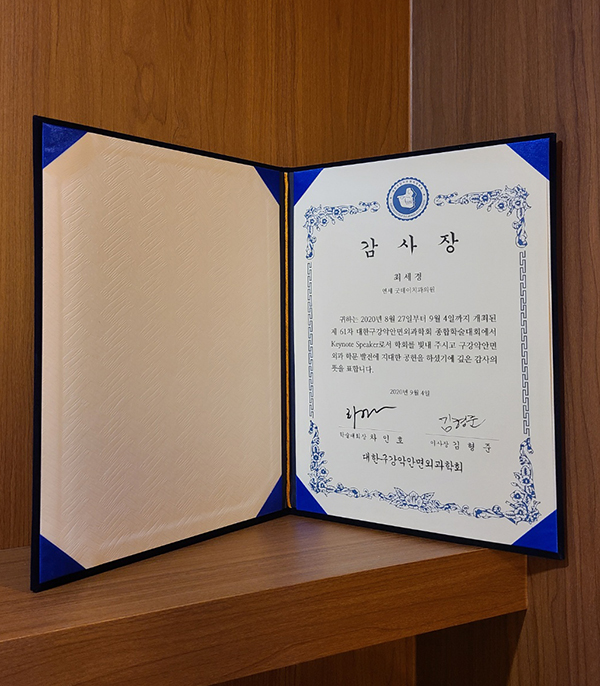 감사장
최세경
연세 굿데이치과의원
귀하는 2020년 8월 27일부터 9월 4일까지 개최된
제 61차 대한구강악안면외과학회 종합학술대회에서
Keynote Speaker로서 학회를 빛내 주시고 구강악안면
외과 학문 발전에 지대한 공헌을 하셨기에 깊은 감사의
뜻을 표합니다.
2020년 9월 4일
학술대회장 차인호 이사장 김형준
대한구강악안면외과학회